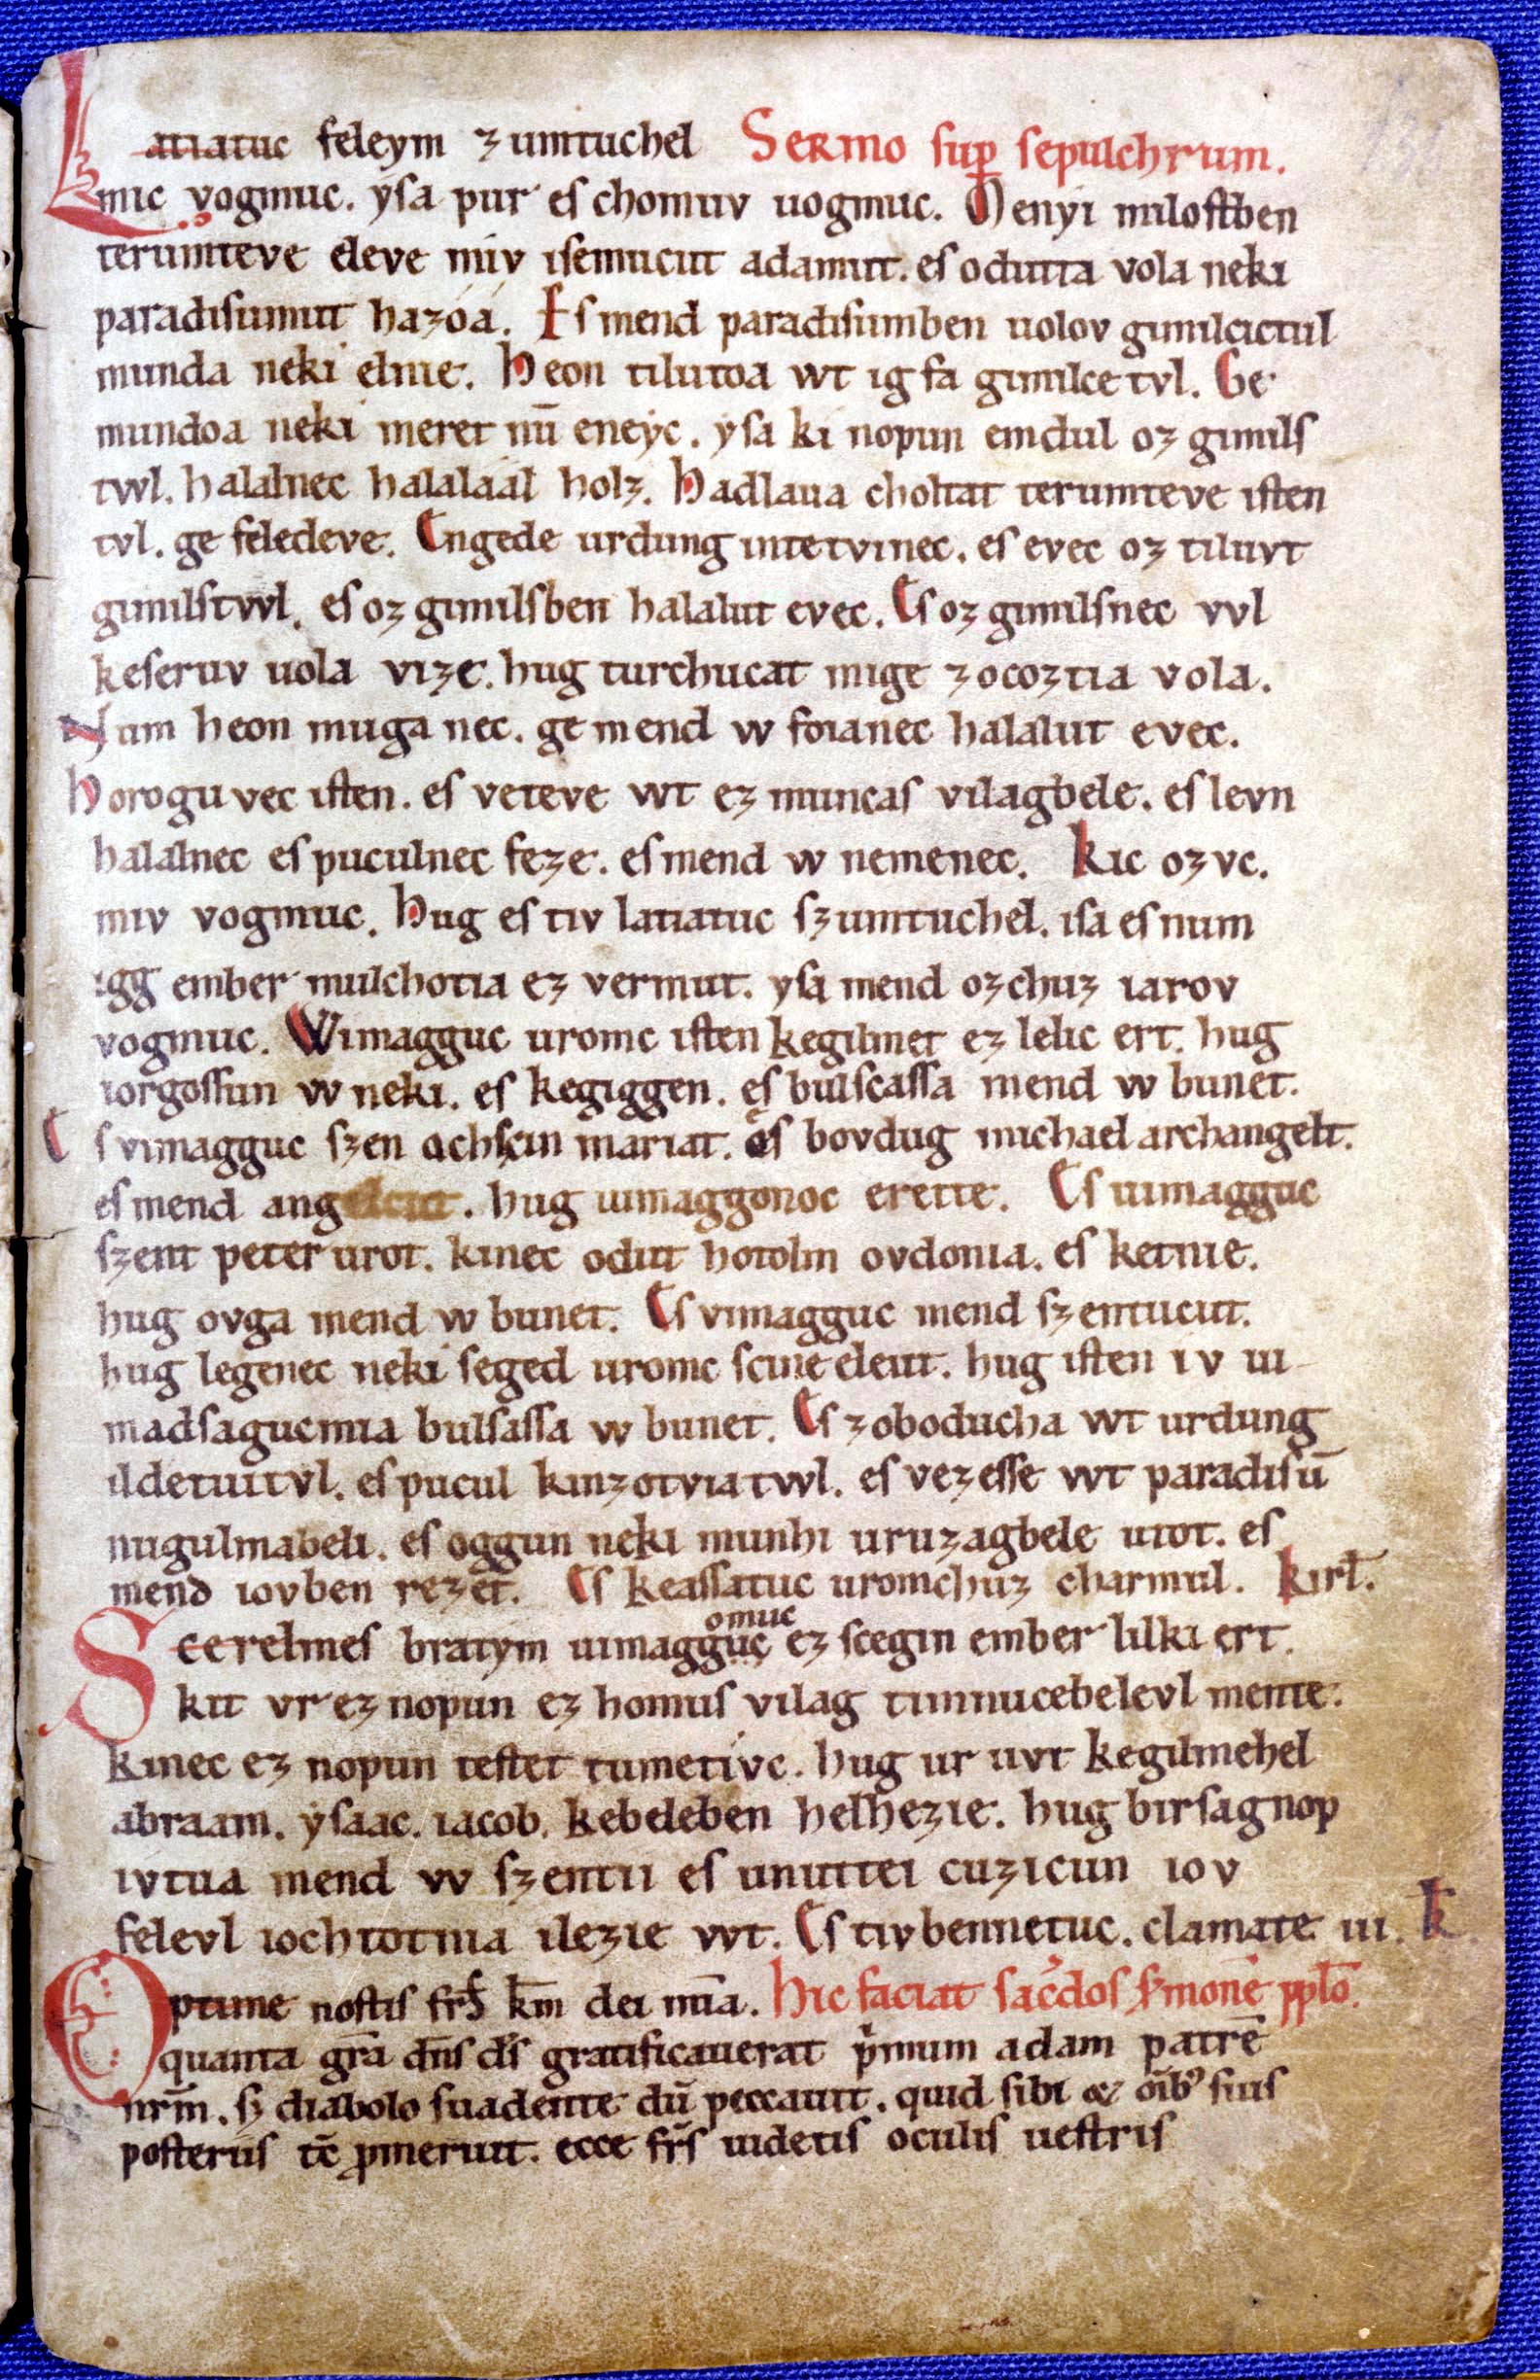 Latiatuc feleym zumtuchel Sermo sup sepulchrum.
mic vogmuc. ysa pur es chomuv uogmuc. Menyi milostben
terumteve eleve miv isemucut adamut. es odutta vola neki
paradisumut hazóá. Es mend paradisumben uolov gimilcictul
munda neki elnie. Heon tilutoa wt ig fa gimilce tvl. Ge
mundoa neki meret nū eneyc. ysa ki nopun emdul oz gimils
twl. halalnec halalaal holz. Hadlaua choltat terumteve isten
tvl. ge feledeve. Engede urdung intetvinec. es evec oz tiluvt
gimilstwl. es oz gimilsben halalut evec. Es oz gimilsnec vvl
keseruv uola vize. hug turchucat mige zocoztia vola.
Num heon muga nec. ge mend w foianec halalut evec.
Horogu vec isten. es veteve wt ez muncas vilagbele. es levn
halalnec es puculnec feze. es mend w nemenec. Kic ozvc.
miv vogmuc. Hug es tiv latiatuc szumtuchel. isa es num
igg ember mulchotia ez vermut. ysa mend ozchuz iarov
vogmuc. Wimagguc uromc isten kegilmet ez lelic ert. hug
iorgossun w neki. es kegiggen. es bulscassa mend w bunet.
Es vimagguc szen achscin mariat. es bovdug michael archangelt.
es mend angelcut. hug uimaggonoc erette. Es uimagguc
szent peter urot. kinec odut hotolm ovdonia. es ketnie.
hug ovga mend w bunet. Es vimagguc mend szentucut.
hug legenec neki seged uromc scine eleut. hug isten iv ui-
madsagucmia bulsassa w bunet. Es zoboducha wt urdung
ildetuitvl. es pucul kinzotviatwl. es vezesse wt paradisū
nugulmabeli. es oggun neki munhi uruzagbele utot. es
mend iovben rezet. Es keassatuc uromchuz charmul. Kirł.
omuc
Scerelmes bratym uimagguc ez scegin ember lilki ert.
kit vr ez nopun ez homus vilag timnucebelevl mente.
kinec ez nopun testet tumetivc. hug ur uvt kegilmehel
abraam. ysaac. iacob. kebeleben helhezie. hug birsagnop
ivtua mend w szentii es unuttei cuzicun iov
felevl iochtotnia ilezie wt. Es tivbennetuc. clamate iii. K.
Optime nostis frs̄ km̄ dei mīa. Hic faciat sac̄dos s̄monē pplō.
quanta grā dn̄s ds̄ gratificauerat p̄mum adam patrē
nrm̄. sz diabolo suadente dū peccauit. quid sibi & oīb' suis
posteriis tē pmeruit. ecce frs̄ uidetis oculis uestris